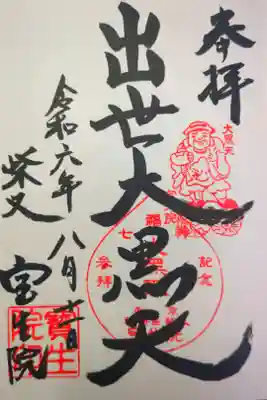 奉拝
大黒天
出世大黒天
七福神
記念
参拝
令和六年八月十一日
柴又
宝生院
寶生院